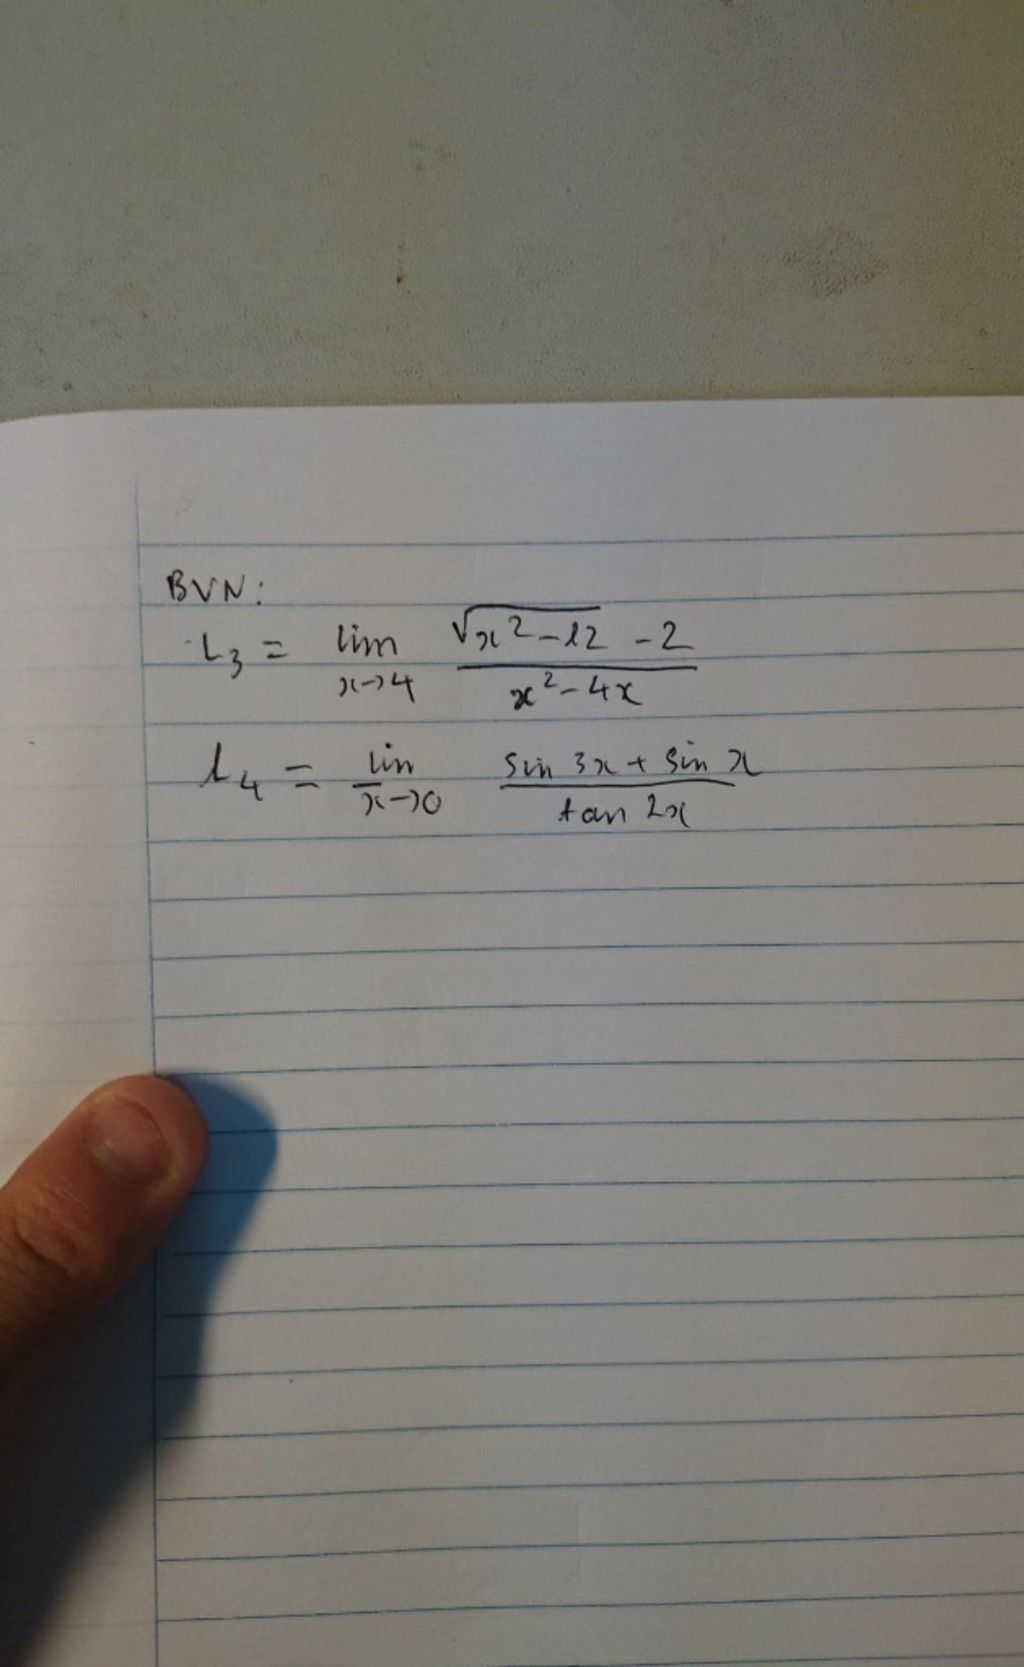 BVN:
L₃ = lim x→4 (√(x²-12) - 2)/(x² - 4x)
L₄ = lim x→0 (sin 3x + sin x)/(tan 2x)